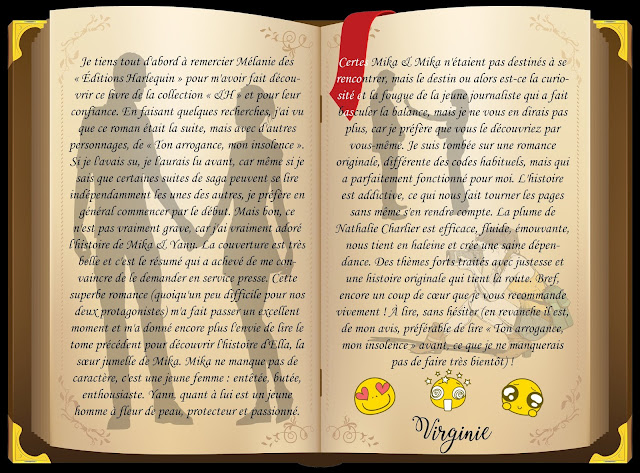 Je tiens tout d'abord à remercier Mélanie des
« Éditions Harlequin » pour m'avoir fait décou-
vrir ce livre de la collection « &H » et pour leur
confiance. En faisant quelques recherches, j'ai vu
que ce roman était la suite, mais avec d'autres
personnages, de « Ton arrogance, mon insolence ».
Si je l'avais su, je l'aurais lu avant, car même si je
sais que certaines suites de saga peuvent se lire
indépendamment les unes des autres, je préfère en
général commencer par le début. Mais bon, ce
n'est pas vraiment grave, car j'ai vraiment adoré
l'histoire de Mika & Yann. La couverture est très
belle et c'est le résumé qui a achevé de me con-
vaincre de le demander en service presse. Cette
superbe romance (quoiqu'un peu difficile pour nos
deux protagonistes) m'a fait passer un excellent
moment et m'a donné encore plus l'envie de lire le
tome précédent pour découvrir l'histoire d'Ella, la
sœur jumelle de Mika. Mika ne manque pas de
caractère, c'est une jeune femme : entêtée, butée,
enthousiaste. Yann, quant à lui est un jeune
homme à fleur de peau, protecteur et passionné.
Certes Mika & Mika n'étaient pas destinés à se
rencontrer, mais le destin ou alors est-ce la curio-
sité et la fougue de la jeune journaliste qui a fait
basculer la balance, mais je ne vous en dirais pas
plus, car je préfère que vous le découvriez par
vous-même. Je suis tombée sur une romance
originale, différente des codes habituels, mais qui
a parfaitement fonctionné pour moi. L'histoire
est addictive, ce qui nous fait tourner les pages
sans même s'en rendre compte. La plume de
Nathalie Charlier est efficace, fluide, émouvante,
nous tient en haleine et crée une saine dépen-
dance. Des thèmes forts traités avec justesse et
une histoire originale qui tient la route. Bref,
encore un coup de cœur que je vous recommande
vivement ! À lire, sans hésiter (en revanche il est,
de mon avis, préférable de lire « Ton arrogance,
mon insolence » avant, ce que je ne manquerais
pas de faire très bientôt) !
Virginie